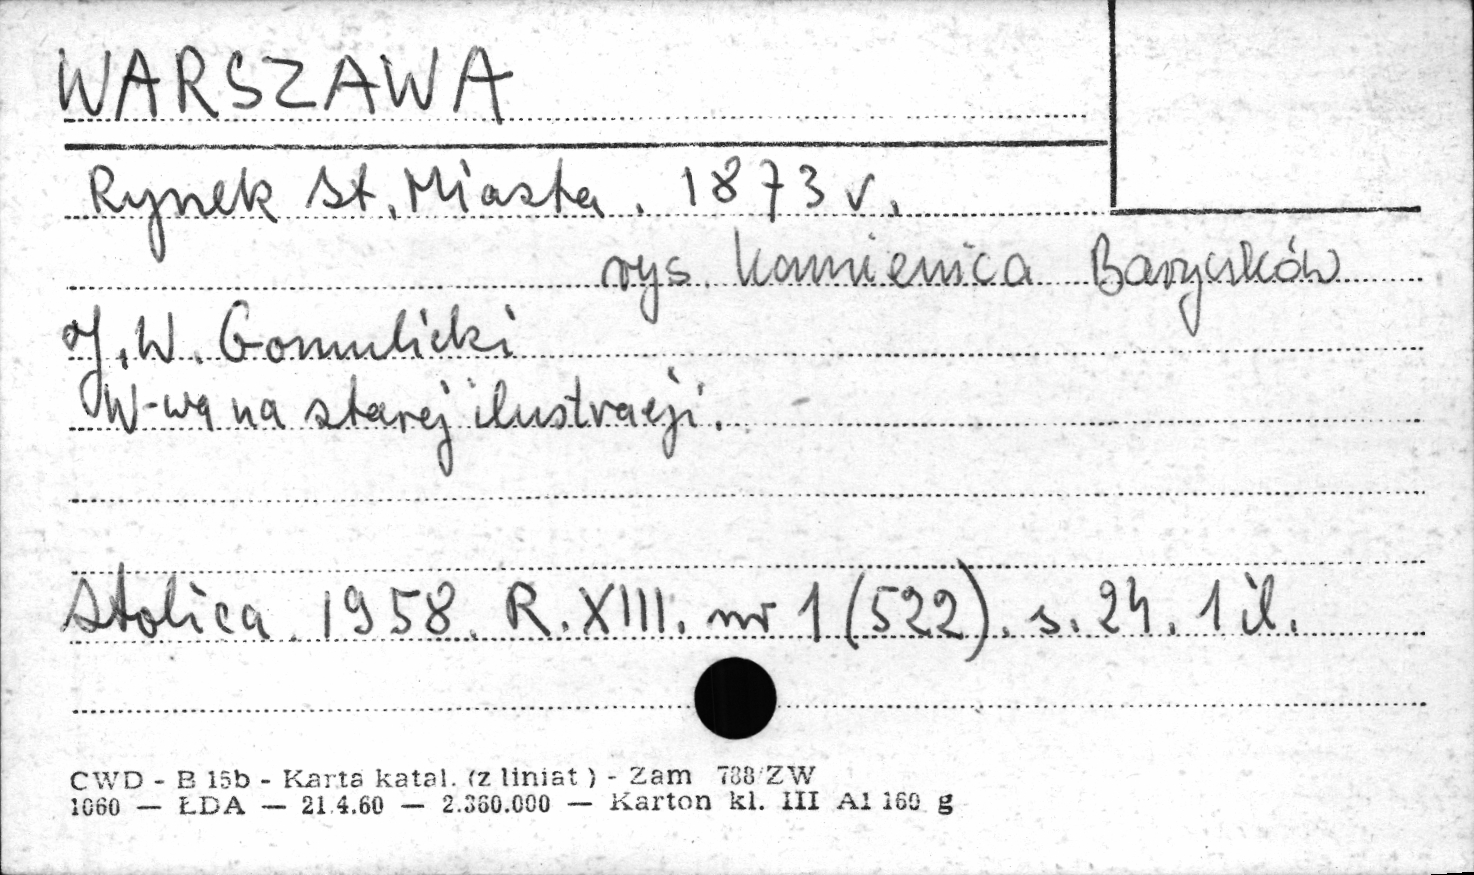 WARSZAWA
Rynek St. Miasta. 1873 r.
rys. Kamienica Baryczków
J. W. Gomulicki
W-wa na starej ilustracji.
Stolica. 1958. R. XIII. nr 1 (522). s. 24. 1 il.
CWD - B 15b - Karta katal. (z liniat) - Zam 788/ZW
1060 — ŁDA — 21.4.60 — 2.360.000 — Karton kl. III A1 160 g